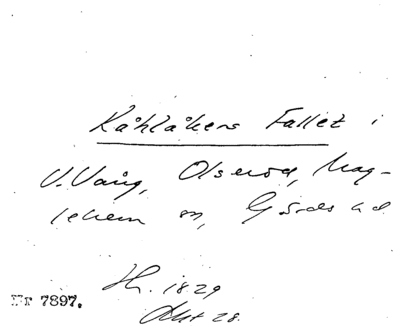 Kåhlåkers Fallet i
V. Vång, Olseröd, Mag-
lehem sn, Gärds hd
H. 1829
Akt 28.
Nr 7897.